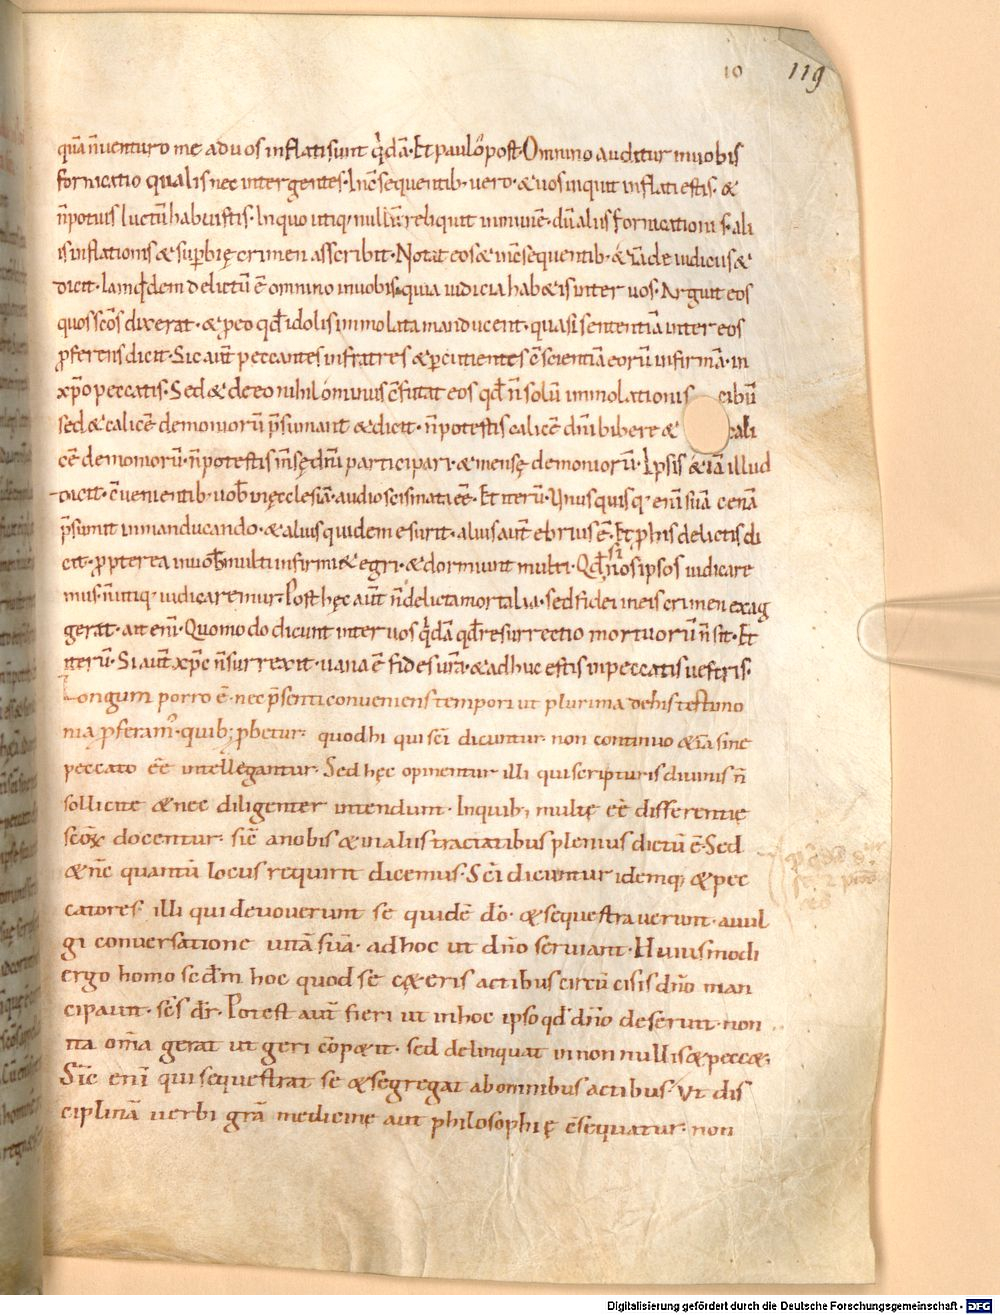 10 119
quā n̄ venturo me ad vos inflati sunt q̇dā. Et paulo post. Omnino auditur in vobis
fornicatio qualis nec inter gentes. In c̄sequentib; vero. & vos inquit inflati estis. &
n̄ potius luctū habuistis. In quo utiq; nullū reliquit inmunē. dū aliis fornicationis. ali
is inflationis & supbię crimen asscribit. Notat eos & in c̄sequentib; & iā de iudiciis &
dicit. Iam qdem delictū ē omnino in vobis. quia iudicia hab&is inter vos. Arguit eos
quos scōs dixerat. & p eo qd idolis immolata manducent. quasi sententiā inter eos
pferens dicit. Sic aūt peccantes in fratres & pcutientes c̄scientiā eorū infirmā. in
xp̄o peccatis. Sed & de eo nihilominus c̄futat eos qd n̄ solū immolationis cibū
sed & calicē demoniorū p̄sumant & dicit. n̄ potestis calicē dn̄i bibere & cali
cē demoniorū. n̄ potestis mensę dn̄i participari & mensę demoniorū. Ipsis & iā illud
dicit. c̄venientib; vob in ęcclesiā. audio scismata ēē. Et iterū. Unusquisq; enī suā cenā
p̄sumit in manducando. & alius quidem esurit. alius aūt ebrius ē. Et p his delictis di
cit. ppterea in vob multi infirmi & egri. & dormiunt multi. Qd si nos ipsos iudicare
mus. n̄ utiq; iudicaremur. Post hęc aūt n̄ delicta mortalia. sed fidei in eis crimen exag
gerat. ait enī. Quomodo dicunt inter vos q̇dā qd resurrectio mortuorū n̄ sit. Et
iterū. Si aūt xp̄c n̄ surrexit. vana ē fides vr̄a. & adhuc estis in peccatis vestris.
Longum porro ē. nec p̄senti conveniens tempori ut plurima de his testimo
nia pferam'. quib; pbetur. quod hi qui scī dicuntur. non continuo & iā sine
peccato ēē intellegantur. Sed hęc opinentur illi qui scripturis divinis n̄
sollicite & nec diligenter intendunt. In quib; multę ēē differentię
scōꝝ docentur. sic̄ a nobis & in aliis tractatibus plenius dictū ē. Sed
& nc̄ quantū locus requirit dicemus. Scī dicuntur idemq; & pec
catores. illi qui devoverunt se quidē dō. & sequestraverunt. a vul
gi conversatione vitā suā. ad hoc ut dn̄o serviant. Huiusmodi
ergo homo scdm hoc quod se c&eris actibus circūcisis dn̄o man
cipavit. scs dr̄. Potest aūt fieri ut in hoc ipso qd dn̄o deservit. non
ita om̄a gerat ut geri cōp&it. sed delinquat in nonnullis & pecc&;
Sic̄ enī qui sequestrat se & segregat ab omnibus actibus. Ut dis
ciplinā verbi grā medicinę aut philosophię c̄sequatur. non
Digitalisierung gefördert durch die Deutsche Forschungsgemeinschaft - DFG